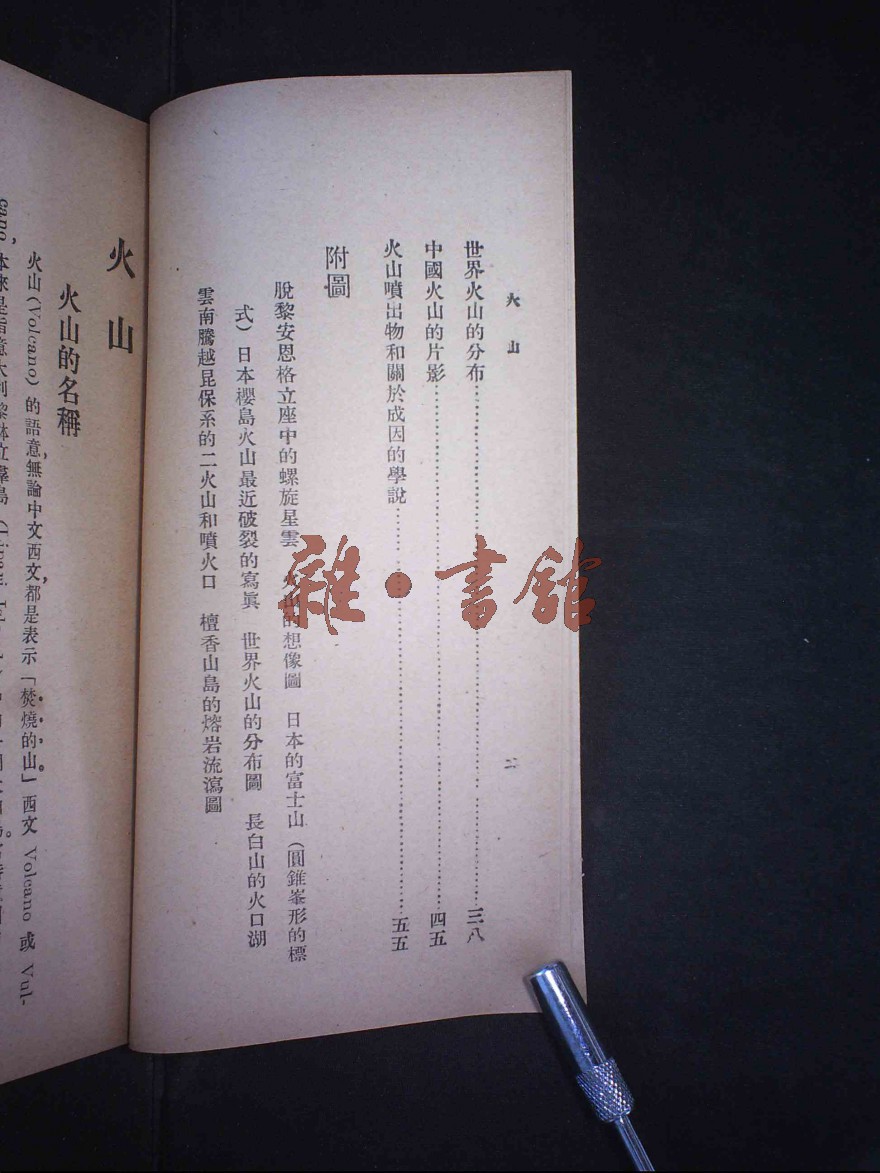 火山
二
世界火山的分布……三八
中國火山的片影……四五
火山噴出物和關於成因的學說……五五
附圖
脫黎安恩格立座中的螺旋星雲 火山的想像圖 日本的富士山（圓錐峯形的標
式）日本櫻島火山最近破裂的寫眞 世界火山的分布圖 長白山的火口湖
雲南騰越昆保系的二火山和噴火口 檀香山島的熔岩流瀉圖
雜·書館
火山
火山的名稱
火山(Volcano)的語意,無論中文西文,都是表示「焚燒的山」。西文 Volcano 或 Vul-
cano,本來是指意大利黎鉢立羣島